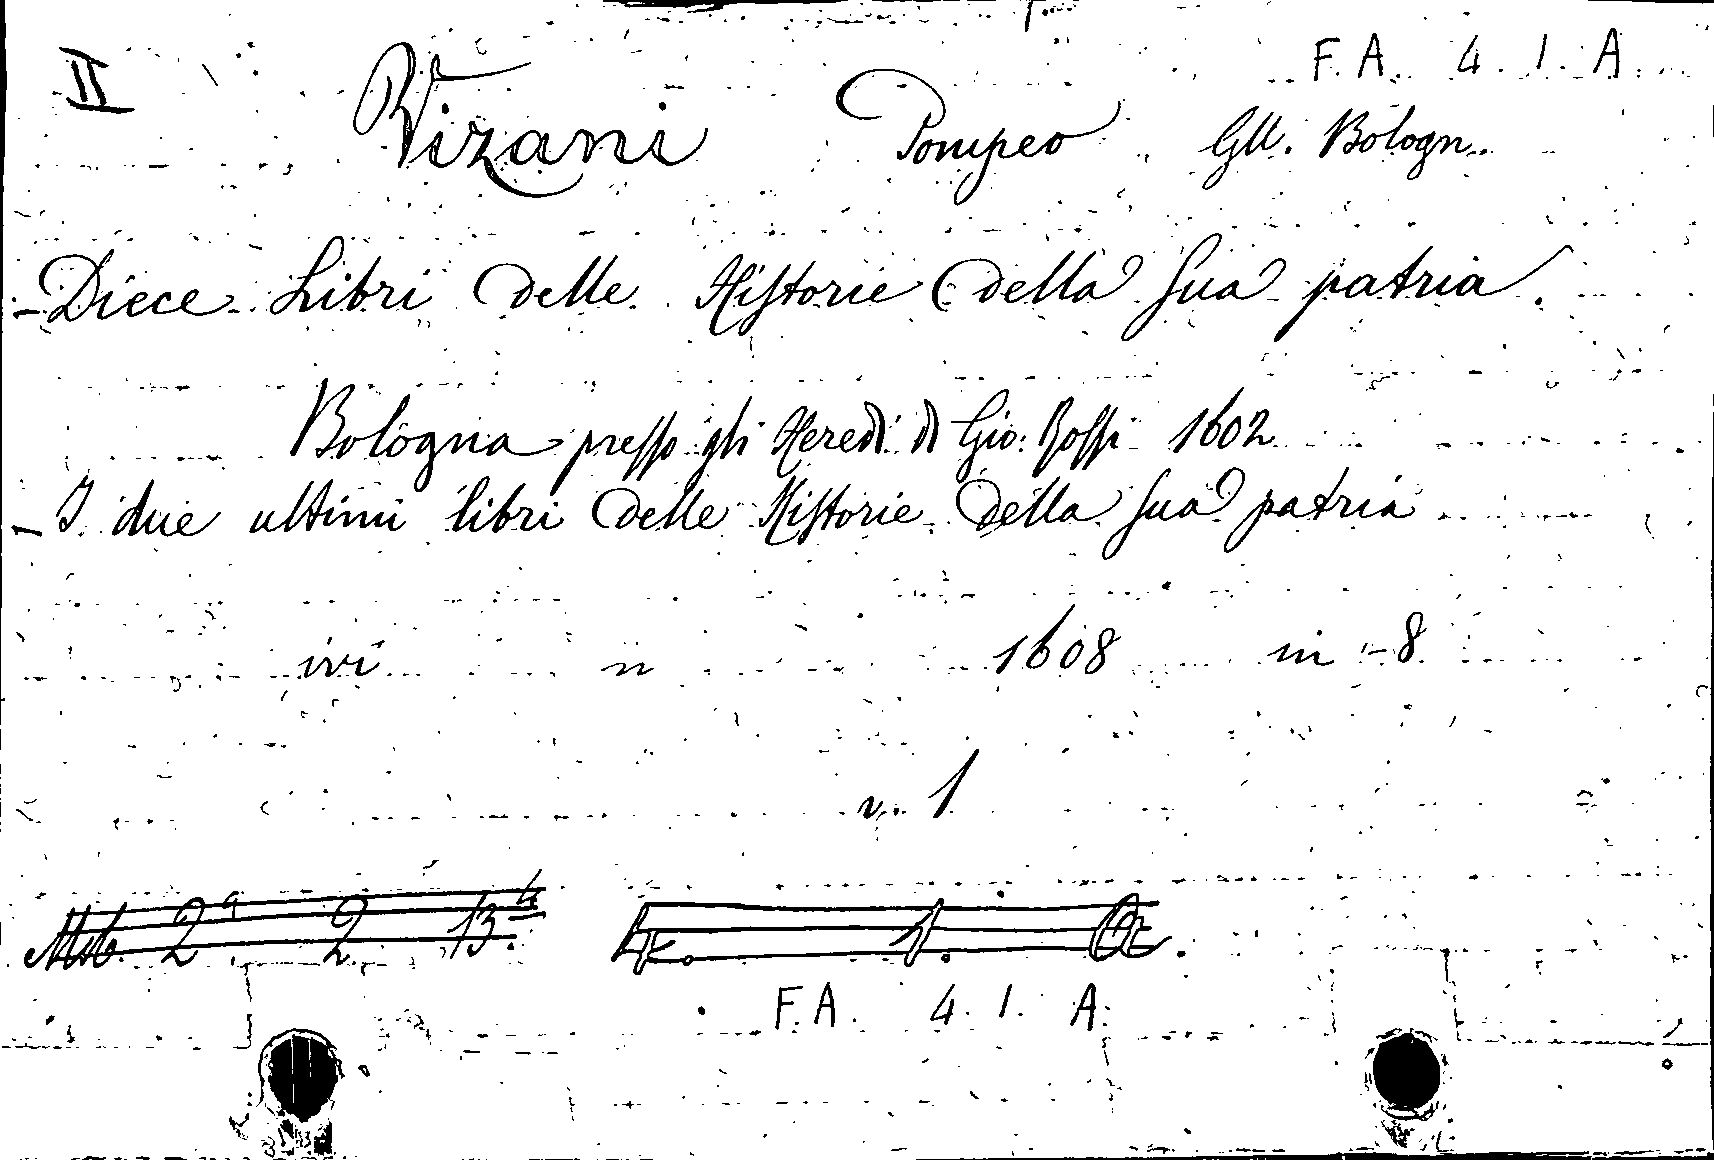 II F. A. 4. 1. A
Vizani Pompeo Gll. Bologn.
- Diece Libri delle Historie della sua patria.
Bologna presso gli Heredi di Gio: Rossi 1602
- I due ultimi libri delle Historie della sua patria
ivi n 1608 in - 8
v. 1
2ª 2 13.
F. A. 4. 1. A.